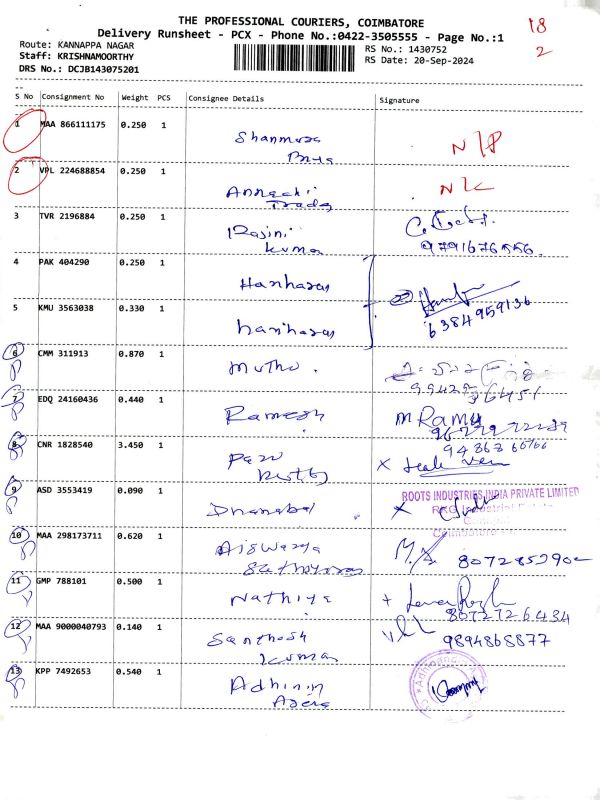 THE PROFESSIONAL COURIERS, COIMBATORE
18
Delivery Runsheet - PCX - Phone No.:0422-3505555 - Page No.:1
2
Route: KANNAPPA NAGAR
RS No.: 1430752
Staff: KRISHNAMOORTHY
RS Date: 20-Sep-2024
DRS No.: DCJB143075201
S No Consignment No Weight PCS Consignee Details Signature
1 MAA 866111175 0.250 1
N/P
2 VPL 224688854 0.250 1
N/C
Traders
3 TVR 2196884 0.250 1 Rajini
Kumar 9791676556.
4 PAK 404290 0.250 1 Hariharan
5 KMU 3563038 0.330 1 hariharan 6384959136
6 CMM 311913 0.870 1 Muthu.
7 EDQ 24160436 0.440 1 Ramesh M Ramu
8 CNR 1828540 3.450 1
9 ASD 3553419 0.090 1 Dhanabal
ROOTS INDUSTRIES INDIA PRIVATE LIMITED
10 MAA 298173711 0.620 1 Aiswarya
8072852902
11 GMP 788101 0.500 1 Nathiya
8072726434
12 MAA 9000040793 0.140 1 Santhosh
Kumar 9894868877
13 KPP 7492653 0.540 1